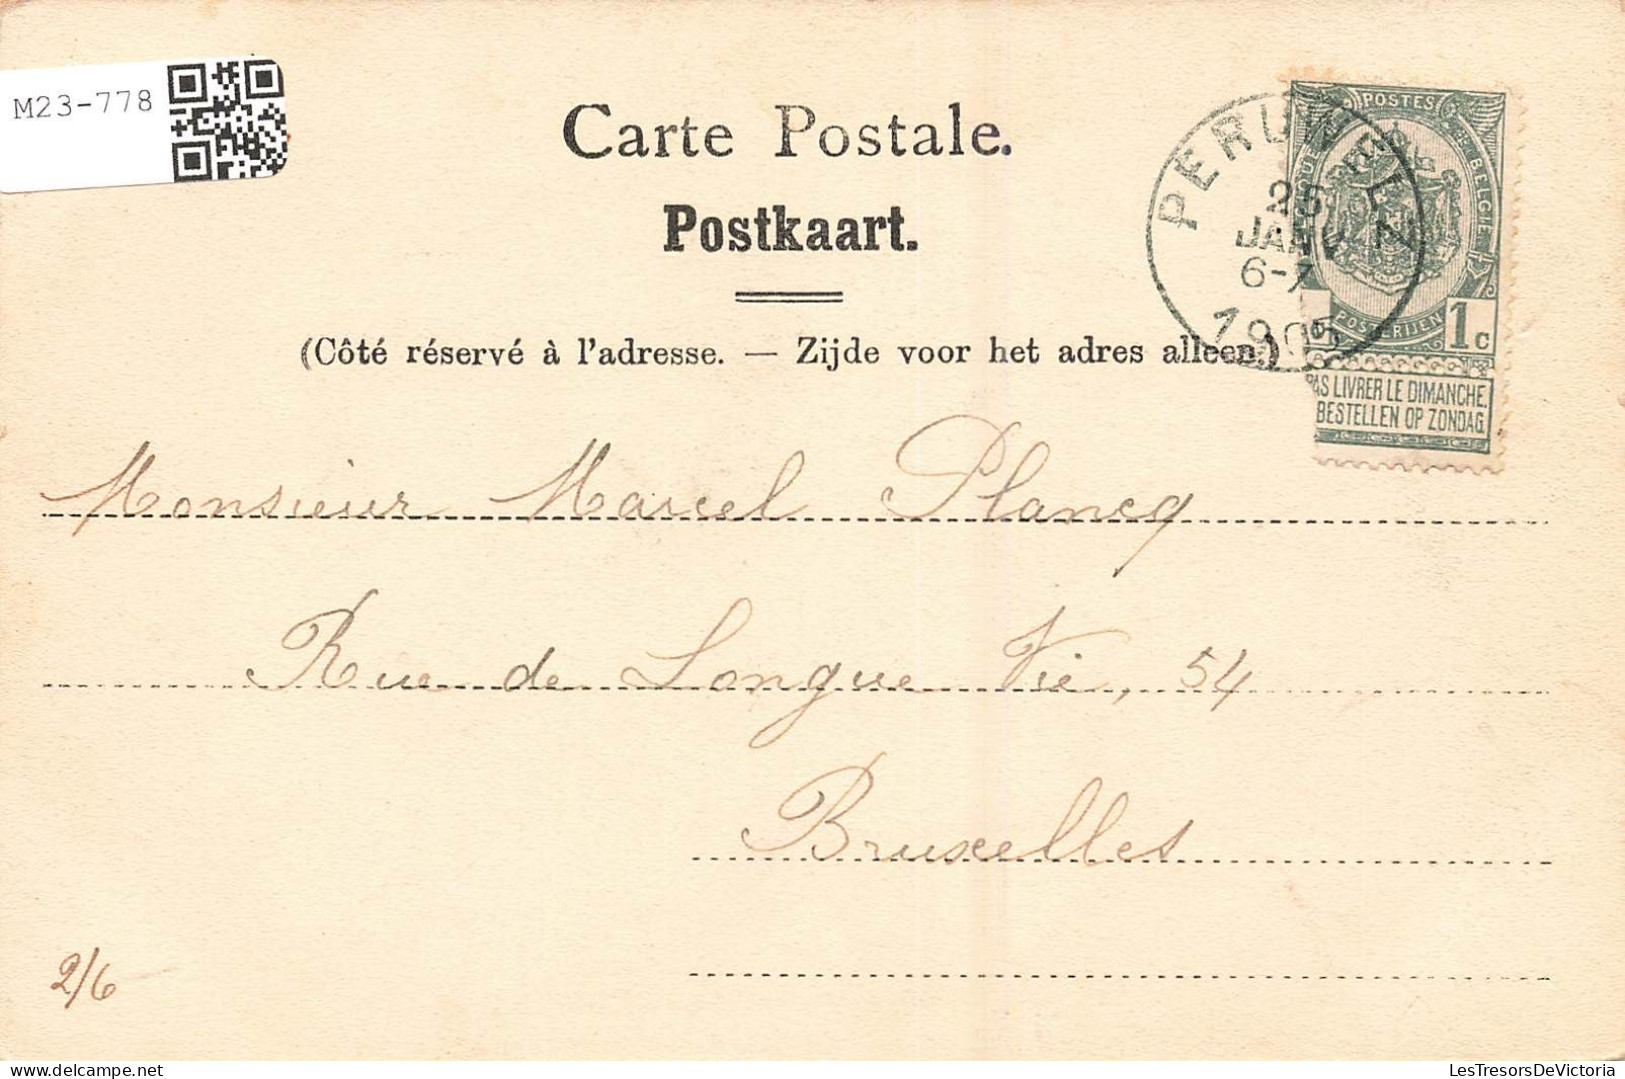 M23-778
Carte Postale.
Postkaart.
(Côté réservé à l'adresse. — Zijde voor het adres alleen.)
PERUWELZ
25
JANV
6-7
1905
POSTES
BELGIQUE BELGIE
POSTERIJEN
1c
PAS LIVRER LE DIMANCHE.
BESTELLEN OP ZONDAG.
Monsieur Marcel Plancq
Rue de Longue Vie, 54
Bruxelles
2/6
LesTresorsDeVictoria
www.delcampe.net